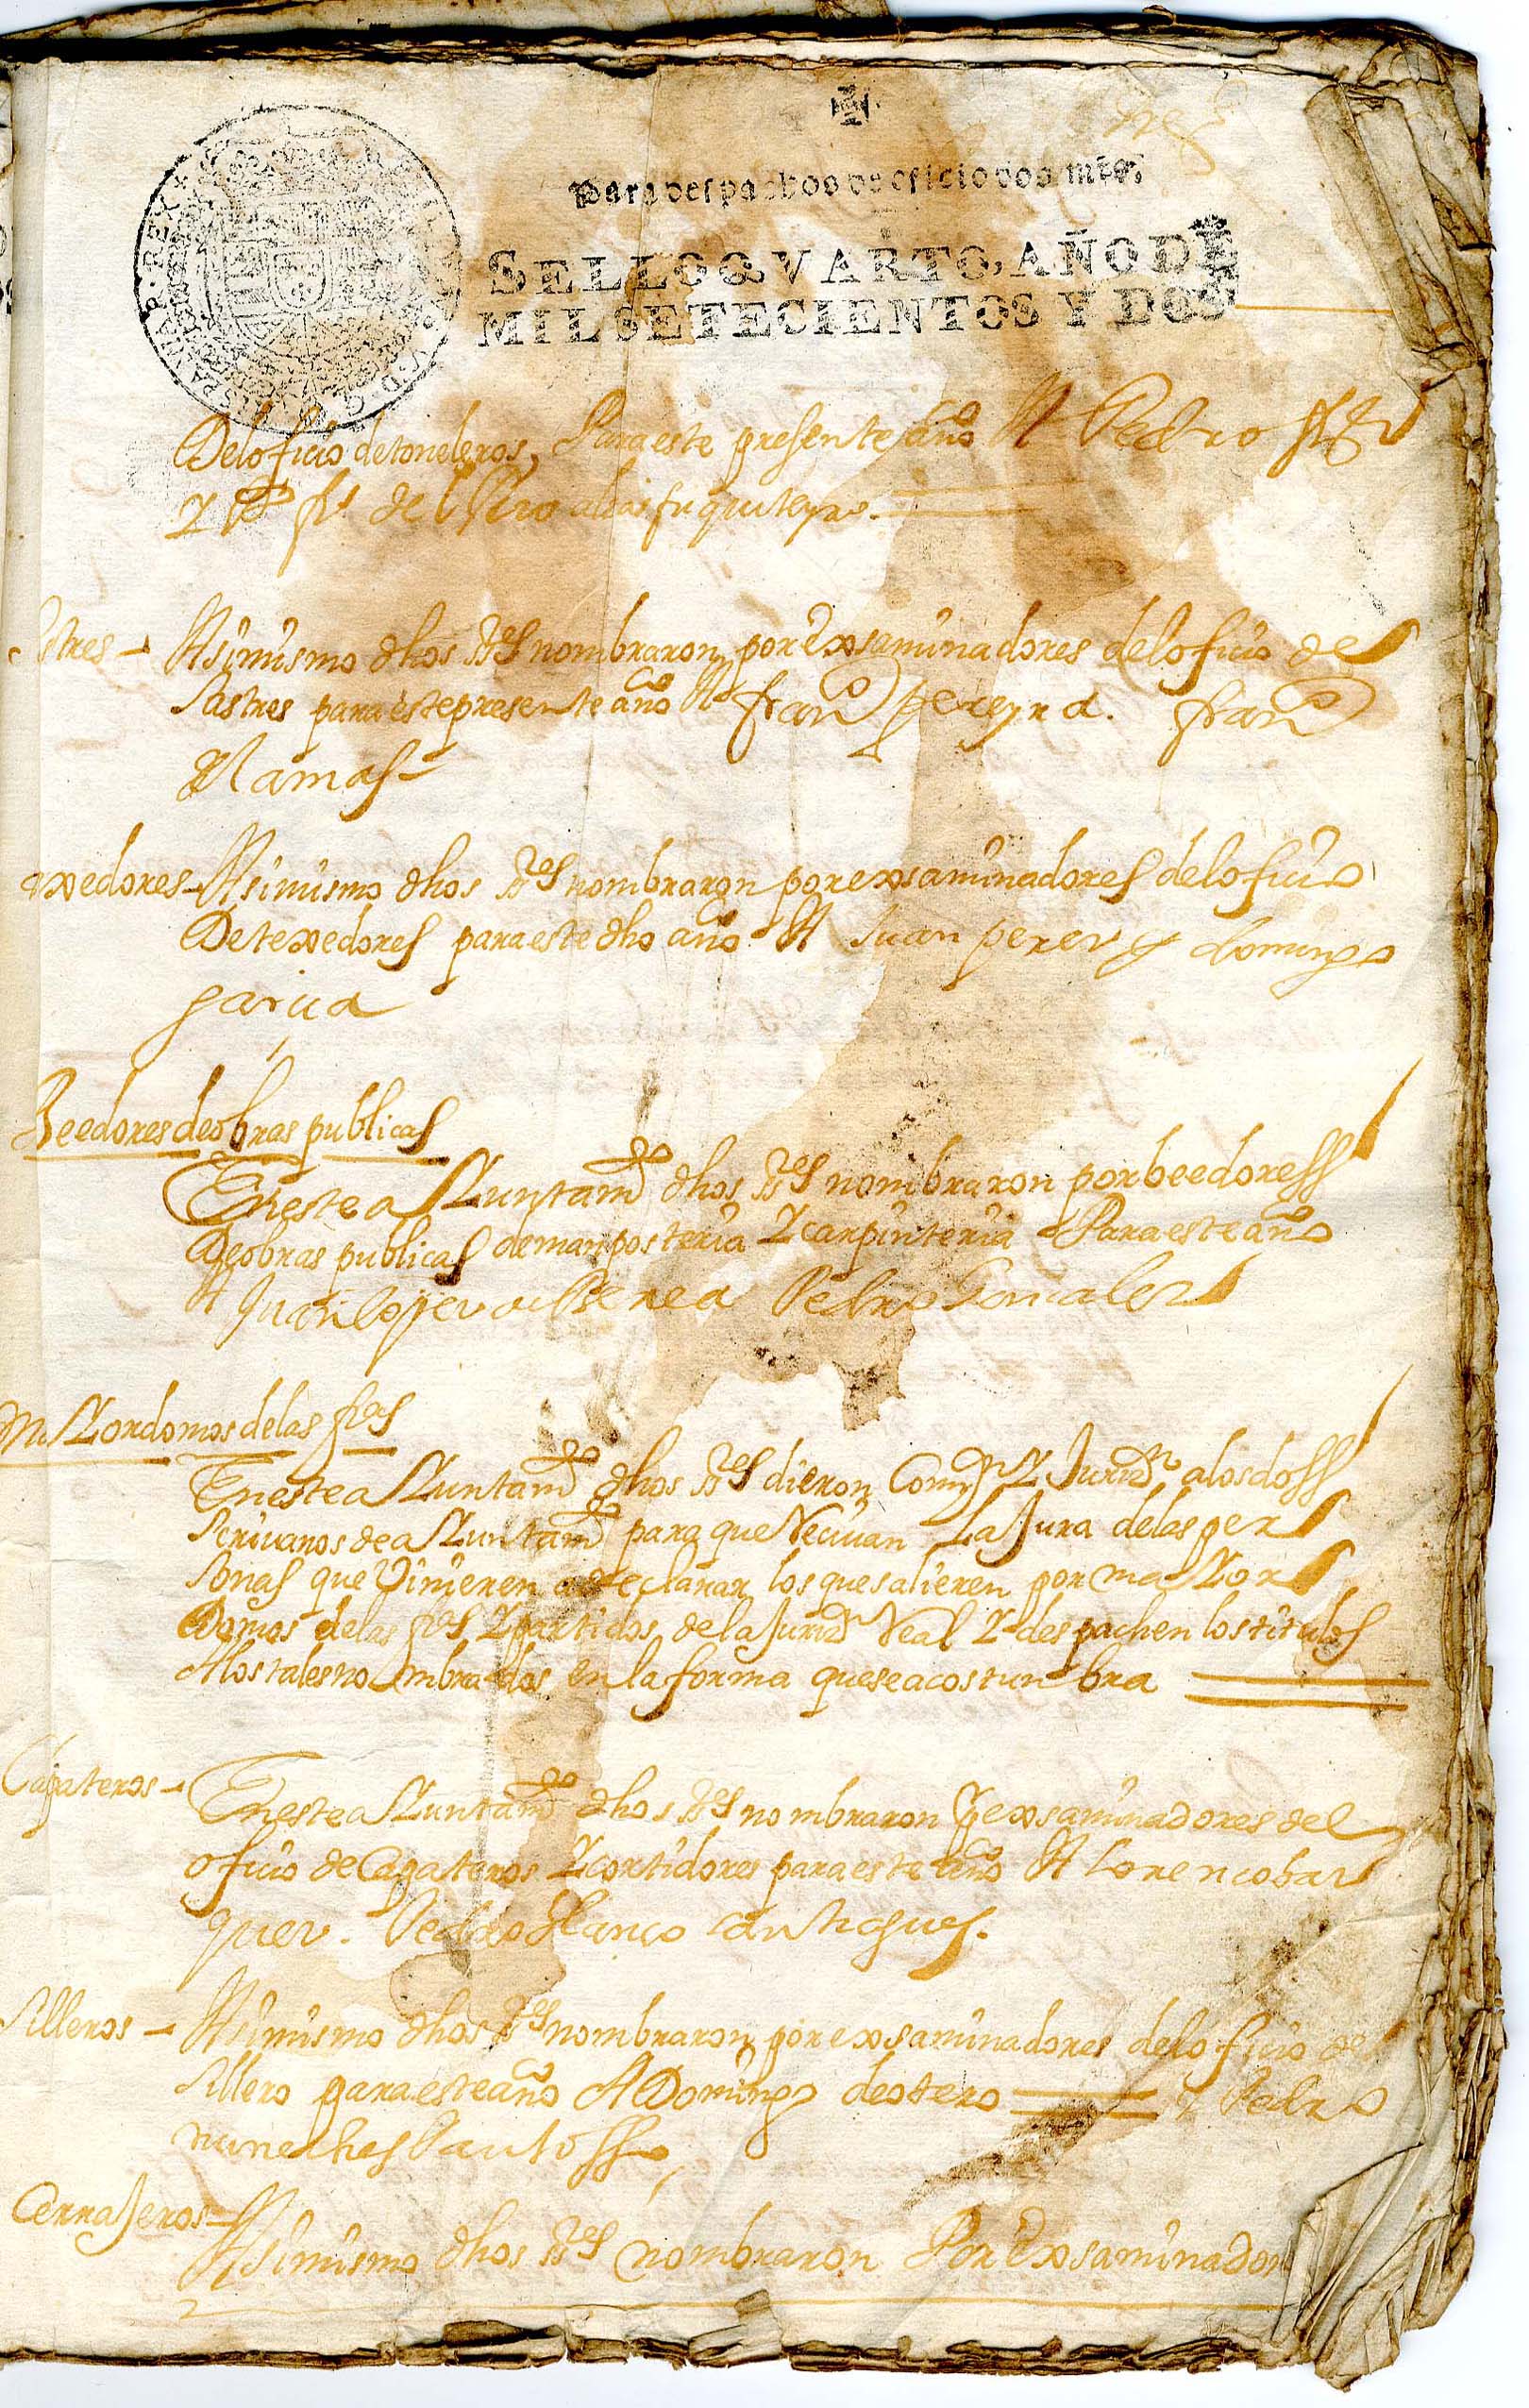 Para despachos de oficio dos mrs.
SELLO QVARTO, AÑO DE
MIL SETECIENTOS Y DOS
HISPANIAR. REX
Del oficio de toneleros, Para este presente año A Pedro
y de alias fuquiteyro
Astres - Asimismo dhos SSres nombraron por Exsaminadores del oficio de
Sastres para este presente año A franco pereyra. franco
Ramas
exedores - Asimismo dhos SSres nombraron por exsaminadores del oficio
De texedores para este dho año A Juan perez y domingo
garcia
Beedores de obras publicas
En este aYuntamto dhos SSres nombraron por beedores
De obras publicas de manposteria Y carpinteria Para este año
A Juan lopez de Pedro Goncalez
MaYordomos de las fras
En este aYuntamto dhos SSres dieron Comon Y Juridn a los doss
Scrivanos de aYuntamto para que Recivan La Jura de las per
sonas que Vinieren a declarar los que salieren por maYor
Domos de las fras Y partidos de la Juridn Real Y despachen los titulos
A los tales nombrados en la forma que se acostunbra
Capateros - En este aYuntamto dhos SSres nombraron por exsaminadores del
oficio de Capateros Y cortidores para este año A Lorenco bar
quez. Pedro blanco
Silleros - Asimismo dhos SSres nombraron por exsaminadores del oficio de
Sillero para este año A Domingo de otero y Pedro
Cerrajeros - Asimismo dhos SSres nombraron Por Exsaminador